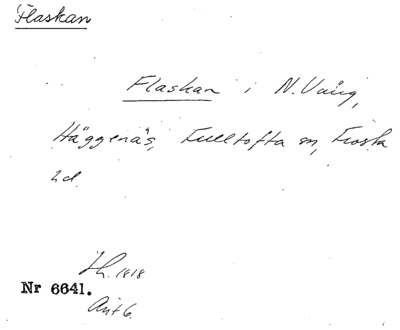 Flaskan
Flaskan i N. Vång,
Häggenäs, Fulltofta sn, Frosta
hd.
Lh. 1818
Nr 6641.
Akt 6.